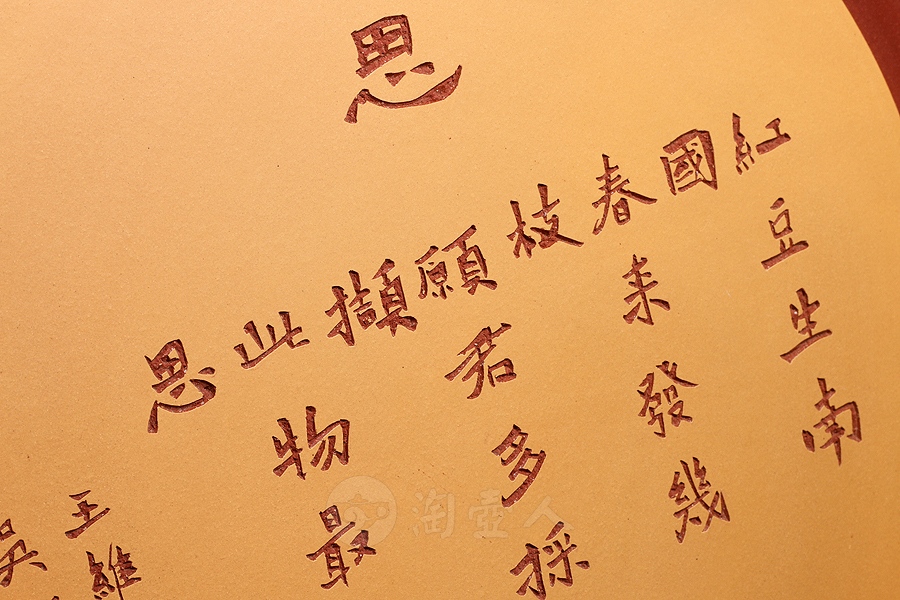 思
紅豆生南
國
春来發幾
枝
願君多採
擷
此物最
思
王維
吳
淘壺人